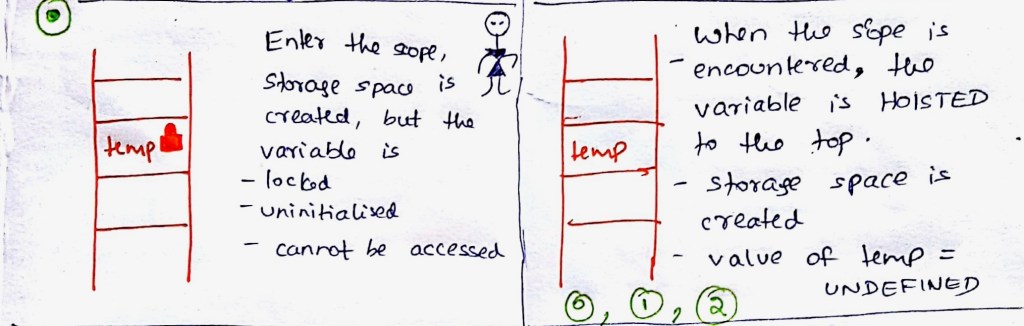 0
Enter the scope,
storage space is
created, but the
variable is
- locked
- uninitialised
- cannot be accessed
temp
When the scope is
- encountered, the
variable is HOISTED
to the top.
- storage space is
created
- value of temp =
UNDEFINED
temp
0, 1, 2